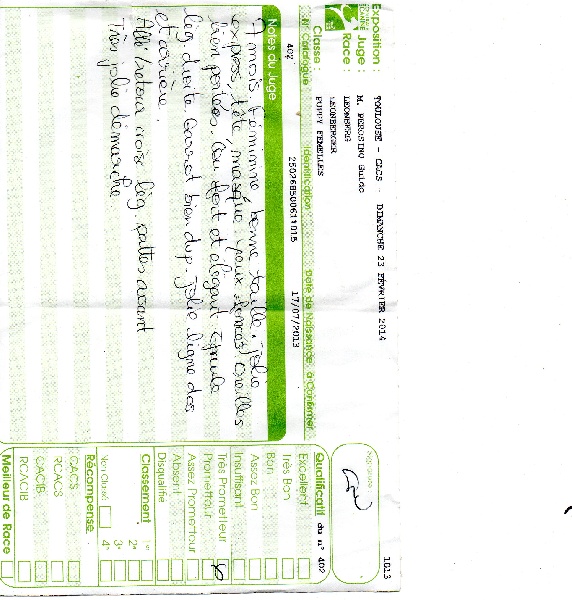 1013
Exposition : TOULOUSE - CACS - DIMANCHE 23 FÉVRIER 2014
Juge : M. PEROSINO Guido
Race : LEONBERG
LEONBERGER
Classe : PUPPY FEMELLES
N° Catalogue Identification Date de Naissance à Confirmer
402 250268500611015 17/07/2013
Notes du Juge
7 mois. Féminine bonne taille. Jolie
express, tête, masque, yeux foncés oreilles
bien portées. Cou fort et élégant épaule
lég. droite. Garrot bien dvp. Jolie ligne dos
et arrière.
lég. pattes avant
Très jolie démarche
Signature
Qualificatif du n° 402
Excellent
Très Bon
Bon
Assez Bon
Insuffisant
Très Prometteur
Prometteur
Assez Prometteur
Absent
Disqualifié
Classement
1er
2e
3e
4e
Non Classé
Récompense
CACS
RCACS
CACIB
RCACIB
Meilleur de Race